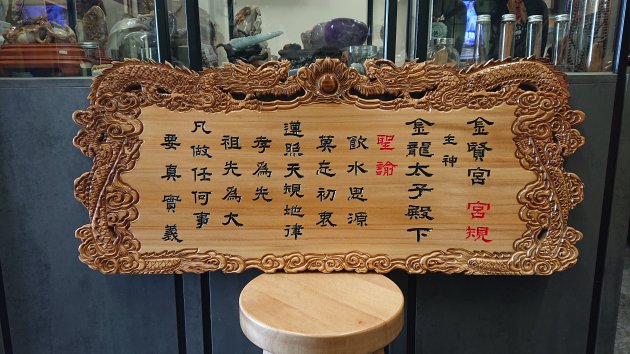 金賢宮 宮規
主神
金龍太子殿下
聖諭
飲水思源
莫忘初衷
遵照天規地律
孝為先
祖先為大
凡做任何事
要真實義